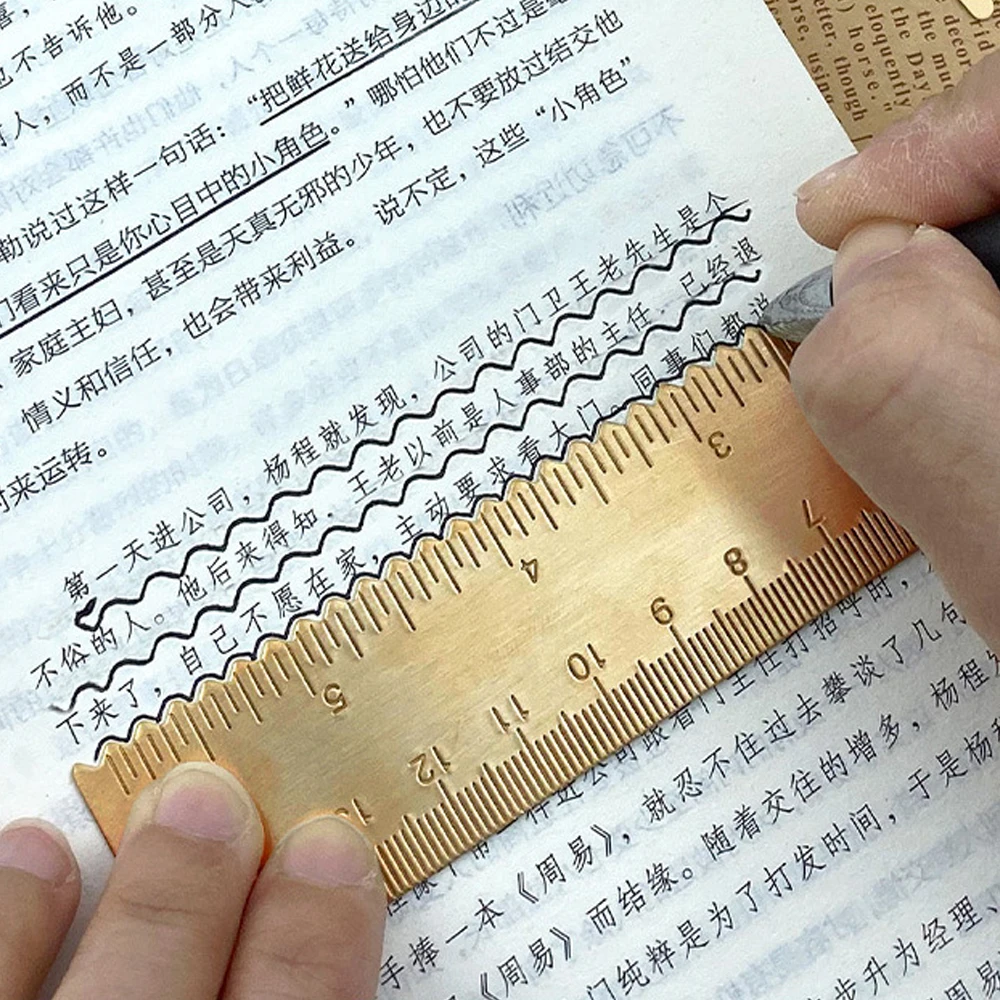 也不告诉他。
人，而不是一部分人
勒说过这样一句话：“把鲜花送给身边的
们看来只是你心目中的小角色。”哪怕他们不过是
家庭主妇，甚至是天真无邪的少年，也不要放过结交他
情义和信任，也会带来利益。说不定，这些“小角色”
时来运转。
第一天进公司，杨程就发现，公司的门卫王老先生是个
不俗的人。他后来得知，王老以前是人事部的主任，已经退
下来了，自己不愿在家，主动要求看大门。同事们都说
3
4
5
7
8
9
10
11
12
13
打招呼时，
就忍不住过去攀谈了几句
手捧一本《周易》，
《周易》而结缘。随着交往的增多，杨程
门纯粹是为了打发时间，于是杨程
步升为经理、
周易
did
the decor
the mu
the Day
eloquently
) horse.
etter, though
orse, using